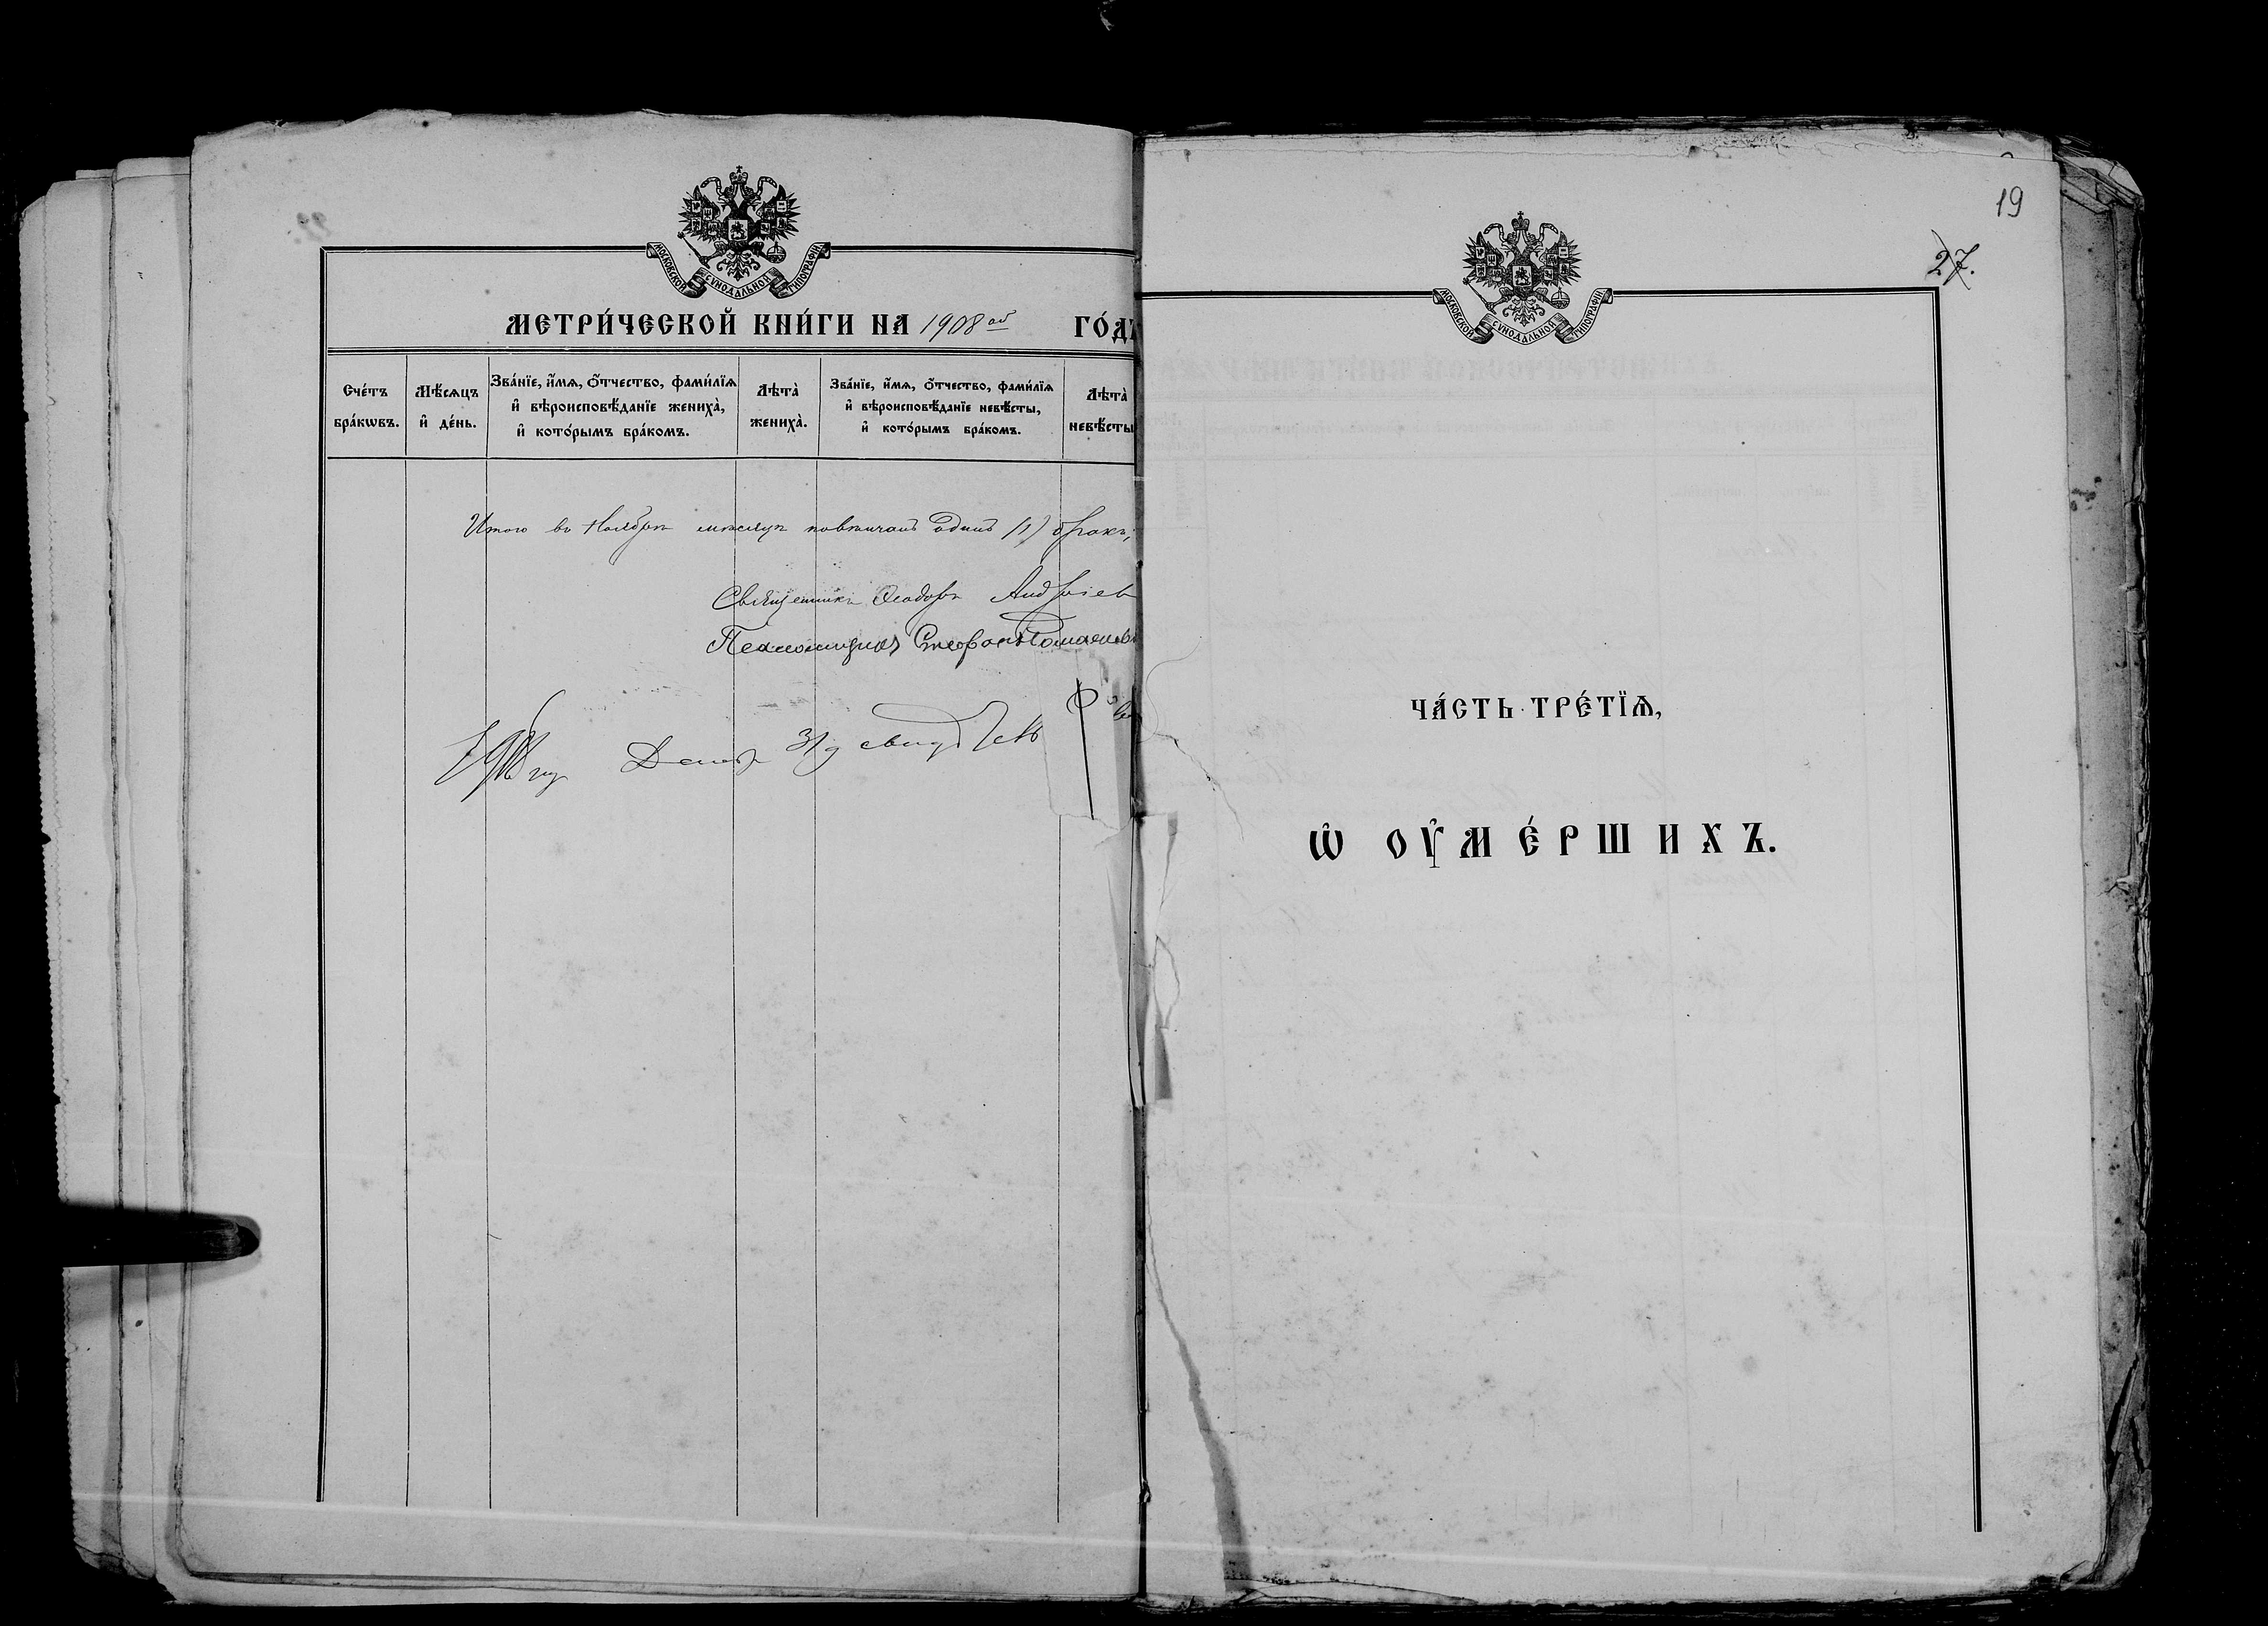 МОСКОВСКОЙ СѴНОДАЛЬНОЙ ТИПОГРАФІИ
МЕТРИ́ЧЕСКОЙ КНИ́ГИ НА 1908 ой ГО́ДЪ
Сче́тъ бра́кѡвъ.
Мѣ́сѧцъ и҆ де́нь.
Зва́нїе, и҆́мѧ, ѻ҆́тчество, фами́лїѧ
и҆ вѣроисповѣ́данїе жениха̀,
и҆ кото́рымъ бра́комъ.
Лѣта̀ жениха̀.
Зва́нїе, и҆́мѧ, ѻ҆́тчество, фами́лїѧ
и҆ вѣроисповѣ́данїе невѣ́сты,
и҆ кото́рымъ бра́комъ.
Лѣта̀ невѣ́сты
Итого въ Ноябрѣ мѣсяцѣ повѣнчанъ одинъ (1) бракъ;
Священникъ Ѳеодоръ Андріев
Псаломщикъ Стефанъ
31
19
27.
МОСКОВСКОЙ СѴНОДАЛЬНОЙ ТИПОГРАФІИ
ЧА́СТЬ ТРЕ́ТЇѦ,
Ѡ҆ ОУ҆МЕ́РШИХЪ.